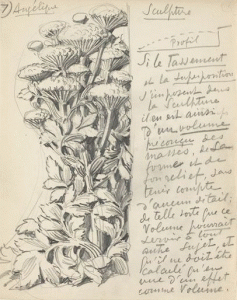 7) Angélique
Sculpture
Profil
Si le Tassement
et la superposition
s'imposent dans
la Sculpture
il en est ainsi
D'un volume
preconçu des
masses, de la
forme et de
son relief, sans
tenir compte
D'aucun detail;
de telle sorte que ce
Volume pourrait
servir à tout
autre sujet, et
qu'il ne doit être
Calculé qu'en
vue d'un effet
comme Volume.